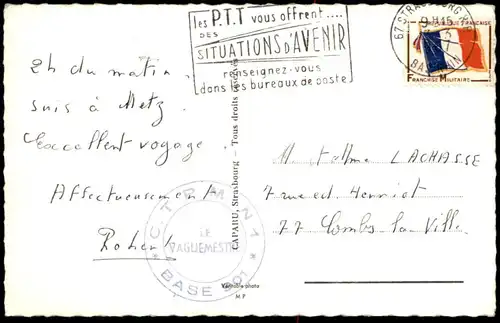 les P.T.T vous offrent....
DES
SITUATIONS D'AVENIR
renseignez-vous
dans les bureaux de poste
67 STRASBOURG
9H15
BAS-RHIN
RÉPUBLIQUE FRANÇAISE
FRANCHISE MILITAIRE
2h du matin.
suis à Metz
Excellent voyage.
Affectueusement
Robert
C.T.R.M N°1
LE
VAGUEMESTRE
BASE 901
CAPARU, Strasbourg - Tous droits réservés
M et Mme LACHASSE
7 rue ed. Henriot
77 Combs la Ville
Véritable photo
M P